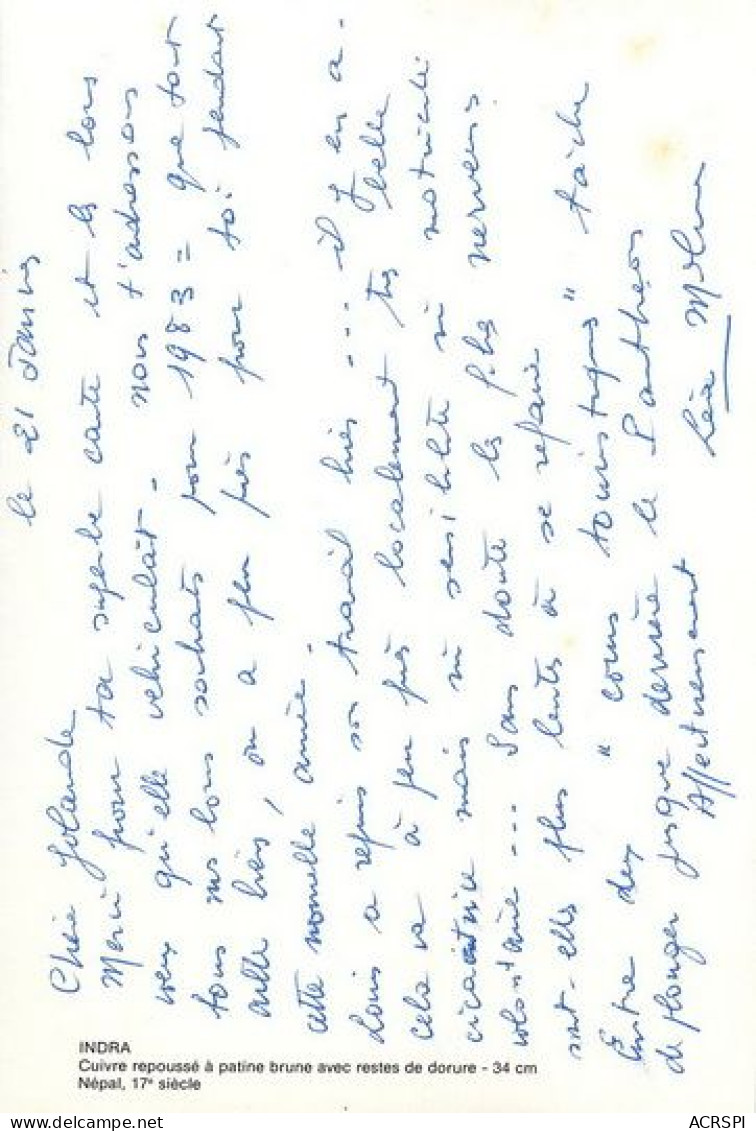 le 21 Janvier
Chère Yolande
Merci pour ta superbe carte et les bons
vœux qu'elle véhiculait. nous t'adressons
tous nos bons souhaits pour 1983 = que tout
aille bien, ou a peu près pour toi pendant
cette nouvelle année.
Louis a repris son travail hier ... il y en a.
cela va à peu près localement très belle
cicatrice mais ni sensibilité ni motricité
volontaire ... Sans doute les fibres nerveuses
sont-elles plus lentes à se refaire
Entre deux "cours touristiques" tâche
de plonger jusque derrière le Panthéon
Affectueusement
Léa
INDRA
Cuivre repoussé à patine brune avec restes de dorure - 34 cm
Népal, 17e siècle
ACRSPI